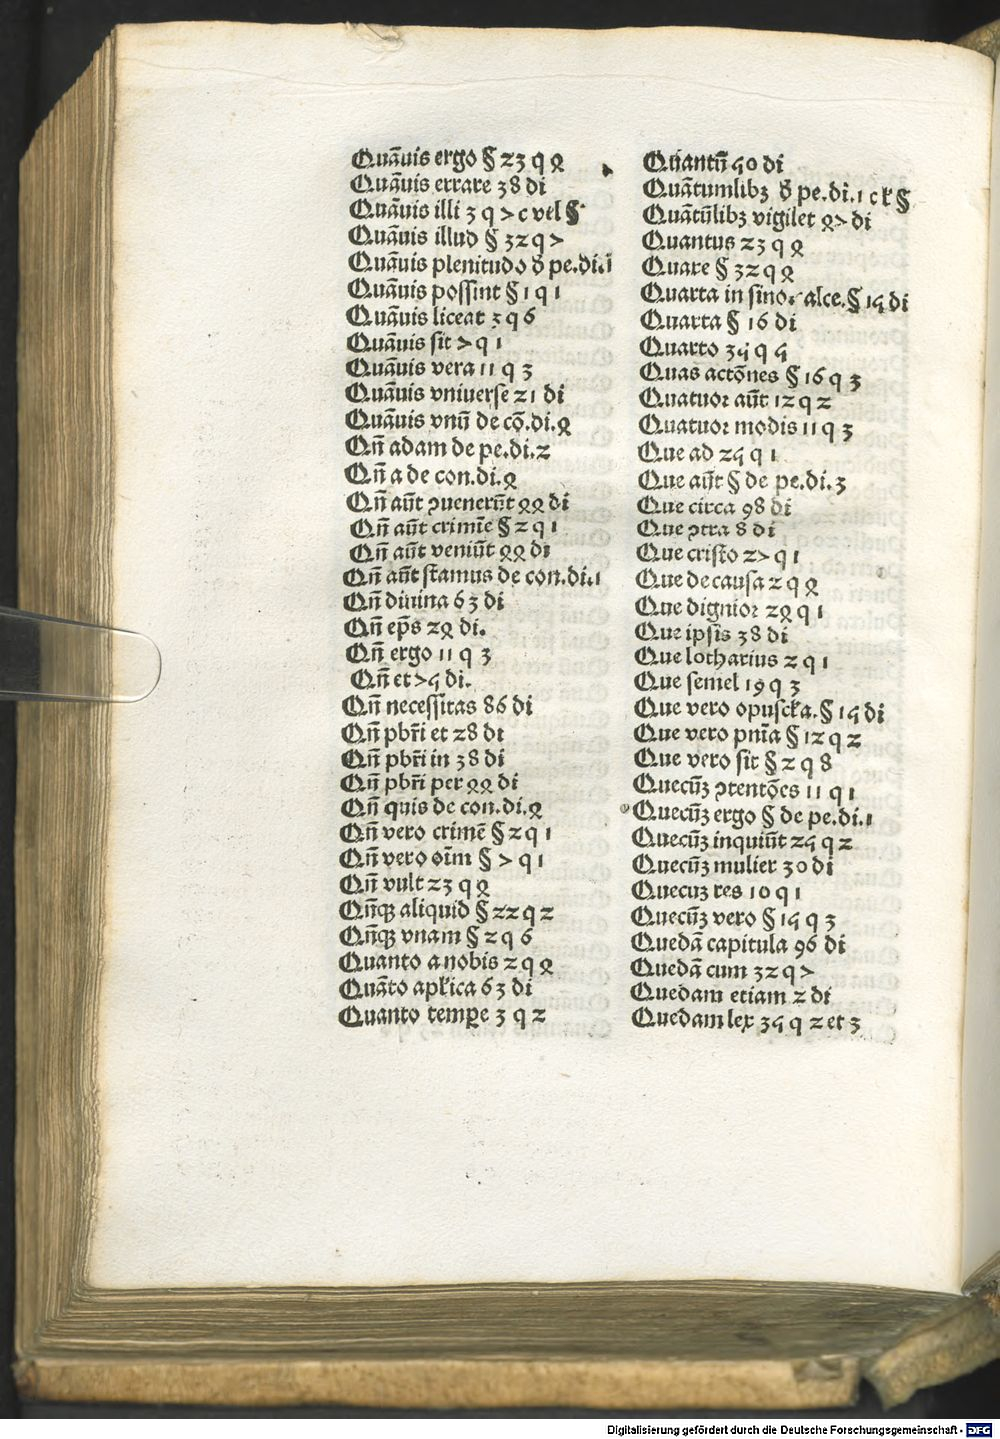 Quāuis ergo § 23 q ꝝ
Quāuis errare 38 di
Quāuis illi 3 q > c vel §
Quāuis illud § 32 q >
Quāuis plenitudo ꝺ̄ pe.di.i
Quāuis possint § 1 q 1
Quāuis liceat 3 q 6
Quāuis sit > q 1
Quāuis vera 11 q 3
Quāuis vniuerse 21 di
Quāuis vnū de cō.di.ꝝ
Qn̄ adam de pe.di.2
Qn̄ a de con.di.ꝝ
Qn̄ aūt ꝯuenerūt ꝝꝝ di
Qn̄ aūt crimīe § 2 q 1
Qn̄ aūt veniūt ꝝꝝ di
Qn̄ aūt stamus de con.di.1
Qn̄ diuina 63 di
Qn̄ ep̄s 2ꝝ di.
Qn̄ ergo 11 q 3
Qn̄ et >ꝗ di.
Qn̄ necessitas 86 di
Qn̄ pbr̄i et 28 di
Qn̄ pbr̄i in 38 di
Qn̄ pbr̄i per ꝝꝝ di
Qn̄ quis de con.di.ꝝ
Qn̄ vero crimē § 2 q 1
Qn̄ vero oīm § > q 1
Qn̄ vult 23 q ꝝ
Qn̄qꝫ aliquid § 22 q 2
Qn̄qꝫ vnam § 2 q 6
Quanto a nobis 2 q ꝝ
Quāto apl̄ica 63 di
Quanto temꝑe 3 q 2
Quantū ꝗ0 di
Quātumlibꝫ ꝺ̄ pe.di.1 ck §
Quātūlibꝫ vigilet ꝝ> di
Quantus 23 q ꝝ
Quare § 32 q ꝝ
Quarta in sino. alce.§ 1ꝗ di
Quarta § 16 di
Quarto 3ꝗ q ꝗ
Quas actōnes § 16 q 3
Quatuor aūt 12 q 2
Quatuor modis 11 q 3
Que ad 2ꝗ q 1
Que aūt § de pe.di.3
Que circa 98 di
Que ꝯtra 8 di
Que cristo 2> q 1
Que de causa 2 q ꝝ
Que dignior 2ꝝ q 1
Que ipsis 38 di
Que lotharius 2 q 1
Que semel 19 q 3
Que vero opuscka.§ 1ꝗ di
Que vero pnīa § 12 q 2
Que vero sit § 2 q 8
Quecūꝫ ꝯtentōes 11 q 1
Quecūꝫ ergo § de pe.di.1
Quecūꝫ inquiūt 2ꝗ q 2
Quecūꝫ mulier 30 di
Quecuꝫ res 10 q 1
Quecūꝫ vero § 1ꝗ q 3
Quedā capitula 96 di
Quedā cum 32 q >
Quedam etiam 2 di
Quedam lex 3ꝗ q 2 et 3
Digitalisierung gefördert durch die Deutsche Forschungsgemeinschaft - DFG